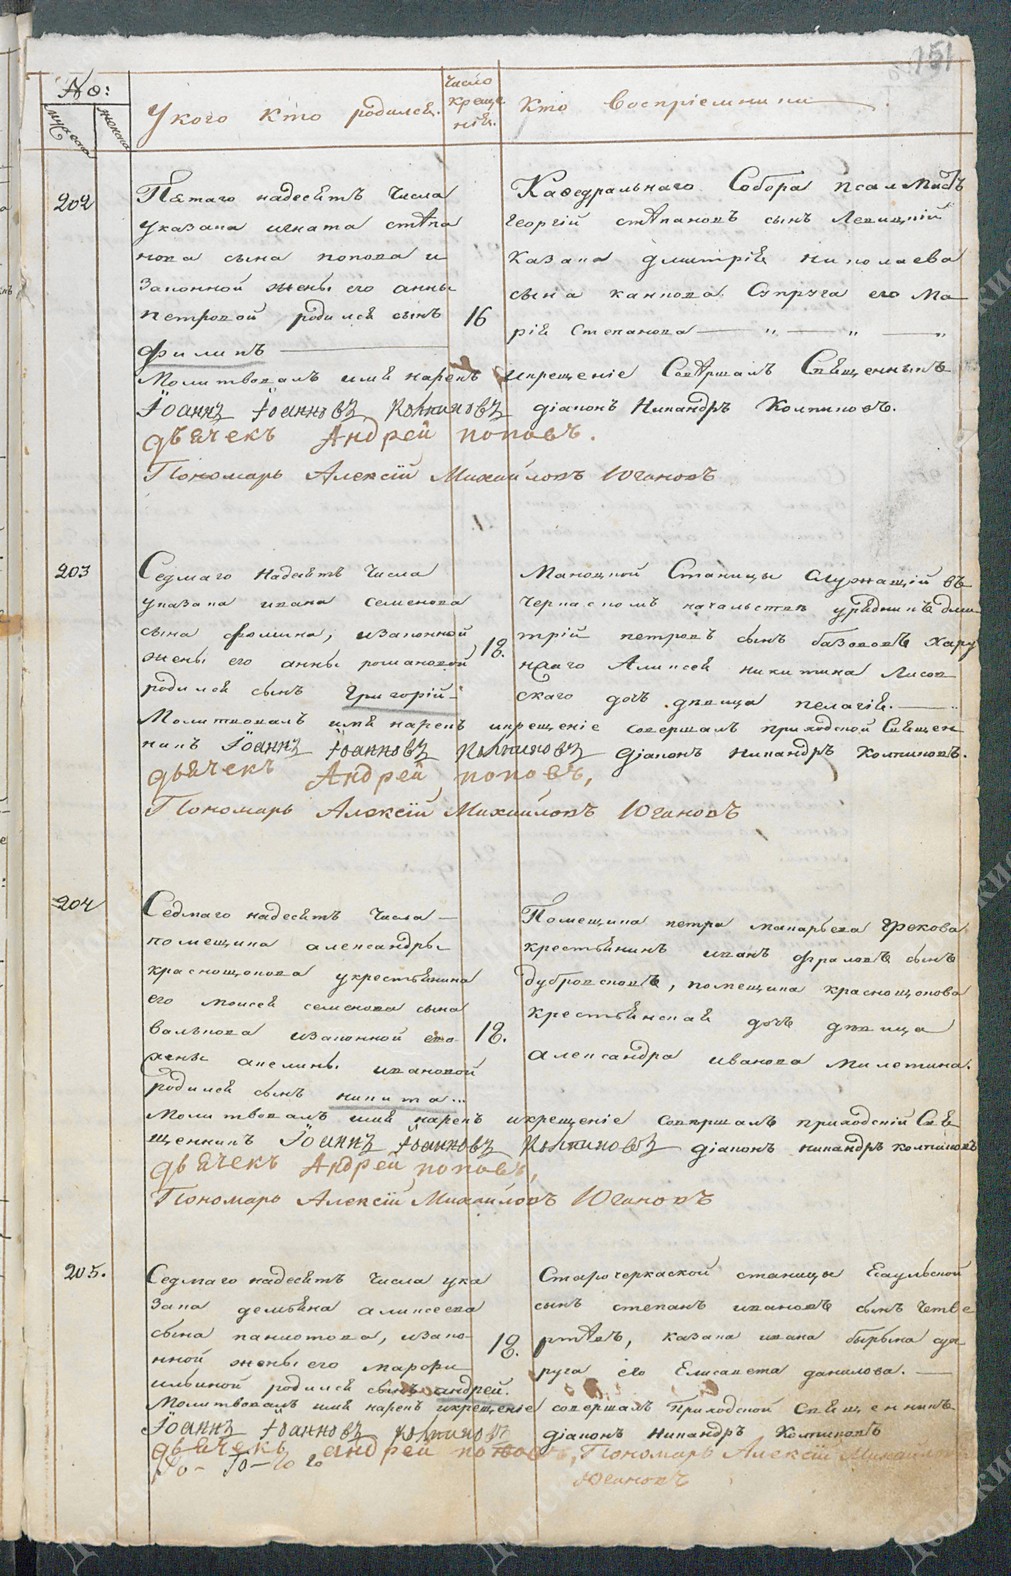 151
№:
мужеска
женска
У кого кто родился.
число
креще
нiя.
Кто восприемники
202
Пятаго надесять числа
у казака игната стѣпа
нова сына попова и
законной жены его анны
петровой родился сынъ
филипъ
16
Кафедральнаго Собора псаломщикъ
георгiй стѣпановъ сынъ Левицкiй
казака дмитрiя николаева
сына карпова Супруга его Ма
рiя степанова
Молитвовалъ имя нарекъ и крещенiе Совѣршалъ Священникъ
Iоаннъ Iоанновъ Колпиковъ дiаконъ Никандръ Колпиковъ.
дьячекъ Андрей поповъ.
Пономарь Алексiй Михайловъ Югановъ
203
Седмаго надесять числа
у казака ивана семенова
сына фомина, и законной
жены его анны романовой
родился сынъ григорiй
18.
Маноцкой Станицы служащiй въ
черкаскомъ начальствѣ урядникъ дми
трiй петровъ сынъ базововъ хору
нжаго Алексея никитина Лисов
скаго дочь дѣвица пелагiя.
Молитвовалъ имя нарекъ и крещенiе совершалъ приходской Священ
никъ Iоаннъ Iоанновъ Колпиковъ дiаконъ никандръ Колпиковъ.
дьячекъ Андрей поповъ,
Пономарь Алексiй Михайловъ Югановъ
204
Седмаго надесять числа
помещика александры
краснощокова у крестьянина
его моисея семенова сына
валькова и законной его
жены акелины ивановой
родился сынъ никита
18.
Помещика петра макарьева грекова
крестьянинъ иванъ фраловъ сынъ
дубровсковъ, помещика краснощокова
крестьянская дочь дѣвица
александра иванова милетина.
Молитвовалъ имя нарекъ и крещенiе Совершалъ приходскiй Свя
щенникъ Iоаннъ Iоанновъ Колпиковъ дiаконъ никандръ колпиковъ
дьячекъ Андрей поповъ,
Пономарь Алексiй Михайловъ Югановъ
205.
Седмаго надесять числа у ка
зака демьяна алексеева
сына панютова, и зако
нной жены его марфы
ильиной родился сынъ андрей.
18.
Старочеркаской станицы Есаульской
сынъ степанъ ивановъ сынъ четве
ртѣвъ, казака ивана бырыка суп
руга его Елисавета данилова.
Молитвовалъ имя нарекъ и крещенiе совершалъ Приходской Священникъ
Iоаннъ Iоанновъ Колпиковъ дiаконъ Никандръ Колпиковъ
дьячекъ андрей поповъ, Пономарь Алексiй Михайловъ
Югановъ